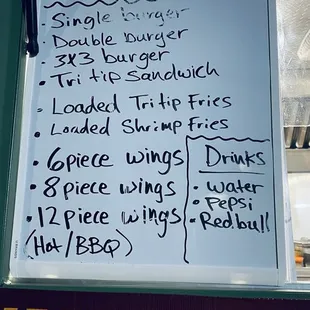 - Single burger
- Double burger
- 3x3 burger
- Tri tip Sandwich
- Loaded Tritip Fries
- Loaded Shrimp Fries
- 6piece wings
- 8piece wings
- 12piece wings
(Hot/BBQ)
Drinks
- water
- Pepsi
- Redbull